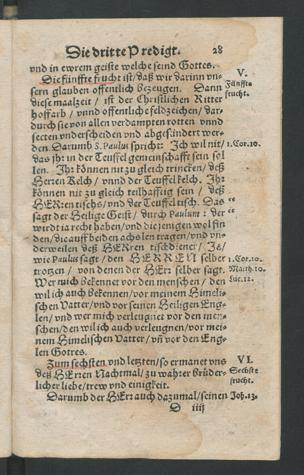 Die dritte Predigt. 28
vnd in ewrem geiste welche seind Gottes.
Die fünffte frucht ist / daß wir darinn vn-
sern glauben offentlich bezeugen. Dann
diese maalzeit / ist der Christlichen Ritter
hoffarb / vnnd offentlich feldzeichen / dar-
durch sie von allen verdampten rotten vnnd
secten vnderscheiden vnd abgesündert wer-
den. Darumb S. Paulus spricht: Ich wil nit /
das jhr in der Teuffel gemeinschafft sein sol
len. Jhr können nit zu gleich trincken / deß
Herren Kelch / vnnd der Teuffel Kelch. Jhr
können nit zu gleich teilhafftig sein / deß
HERren tischs / vnd der Teuffel tisch. Das
sagt der Heilige Geist / durch Paulum: der
wirdt ja recht haben / vnd die jenigen wol fin
den / die auff beiden achslen tragen / vnd vn-
derweilen deß HERren tischdiener / Ja /
wie Paulus sagt / den HERREN selber
trotzen / von denen der HErr selber sagt.
Wer mich bekennet vor den menschen / den
wil ich auch bekennen / vor meinem Himeli-
schen Vatter / vnd vor seinen Heiligen Eng-
len / vnd wer mich verleugnet vor den men-
schen / den wil ich auch verleugnen / vor mei-
nem Himelischen Vatter / vñ vor den Eng-
len Gottes.
Zum sechsten vnd letzten / so ermanet vns
deß HErren Nachtmal / zu wahrer Brüder-
licher liebe / trew vnd einigkeit.
Darumb der HErr auch dazumal / seinen
D iiij
V.
Fünffte
frucht.
1. Cor. 10.
1. Cor. 10.
Matth. 10.
Luc. 12.
VI.
Sechste
frucht.
Joh. 13.